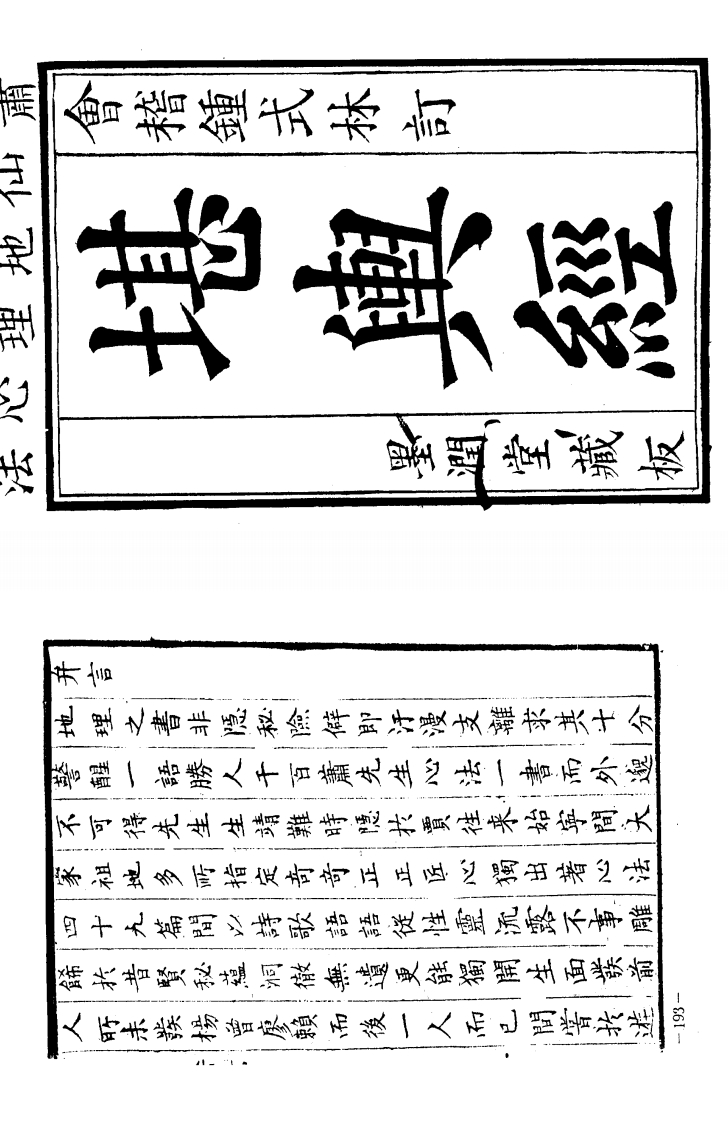 蕭仙地理心法
會稽鍾式林訂
堪輿經
墨潤堂藏板
弁言
地理之書非隱秘險僻即汙漫支離求其十分
警醒一語勝人千百蕭先生心法一書而外邈
不可得先生生靖難時隱於賈往来始寧間大
家祖地多所指定奇奇正正匠心獨出著心法
四十九篇間以詩歌語語從性靈流露不事雕
餙於昔賢秘蘊洞徹無遺更能獨開生面發前
人所未發楊曾廖賴而後一人而已間嘗於遊
-193-